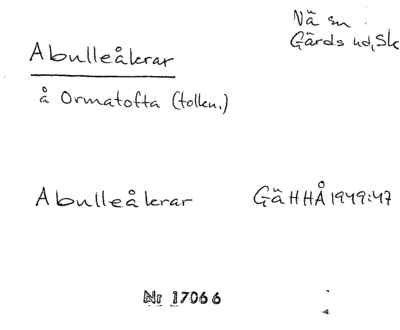 Nä sn
Gärds hd, Sk
Abulleåkrar
å Ormatofta (tolkn.)
Abulleåkrar GäHHÅ 1949:47
Nr 17066